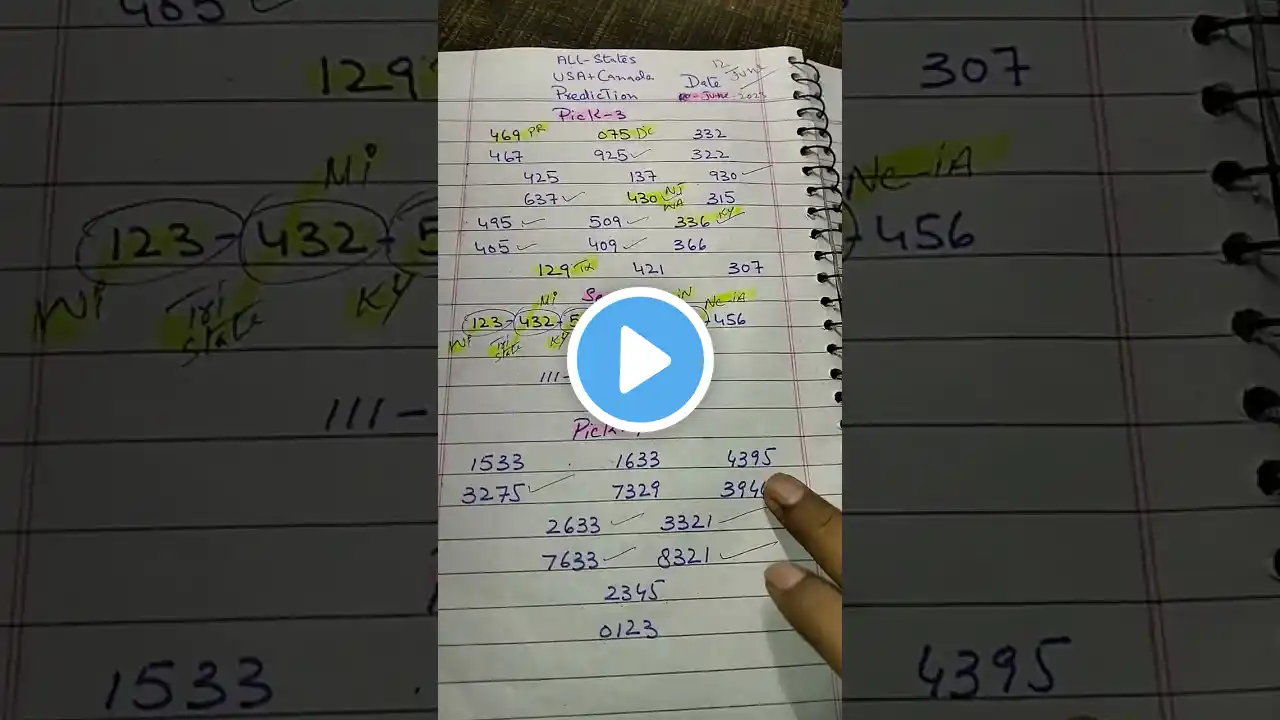 ALL-States
USA+Canada
Prediction
Date 12-June
June-2023
Pick-3
469 PR 075 DC 332
467 925 ✓ 322
425 137 930 ✓
637 ✓ 430 NJ WA 315
495 ✓ 509 ✓ 336 KY ✓
405 ✓ 409 ✓ 366
129 TX 421 307
Mi Nc-iA
123-432-5 456
Wi Tri State KY
111-
Pick-
1533 1633 4395
3275 ✓ 7329 394
2633 ✓ 3321 ✓
7633 ✓ 8321 ✓
2345
0123